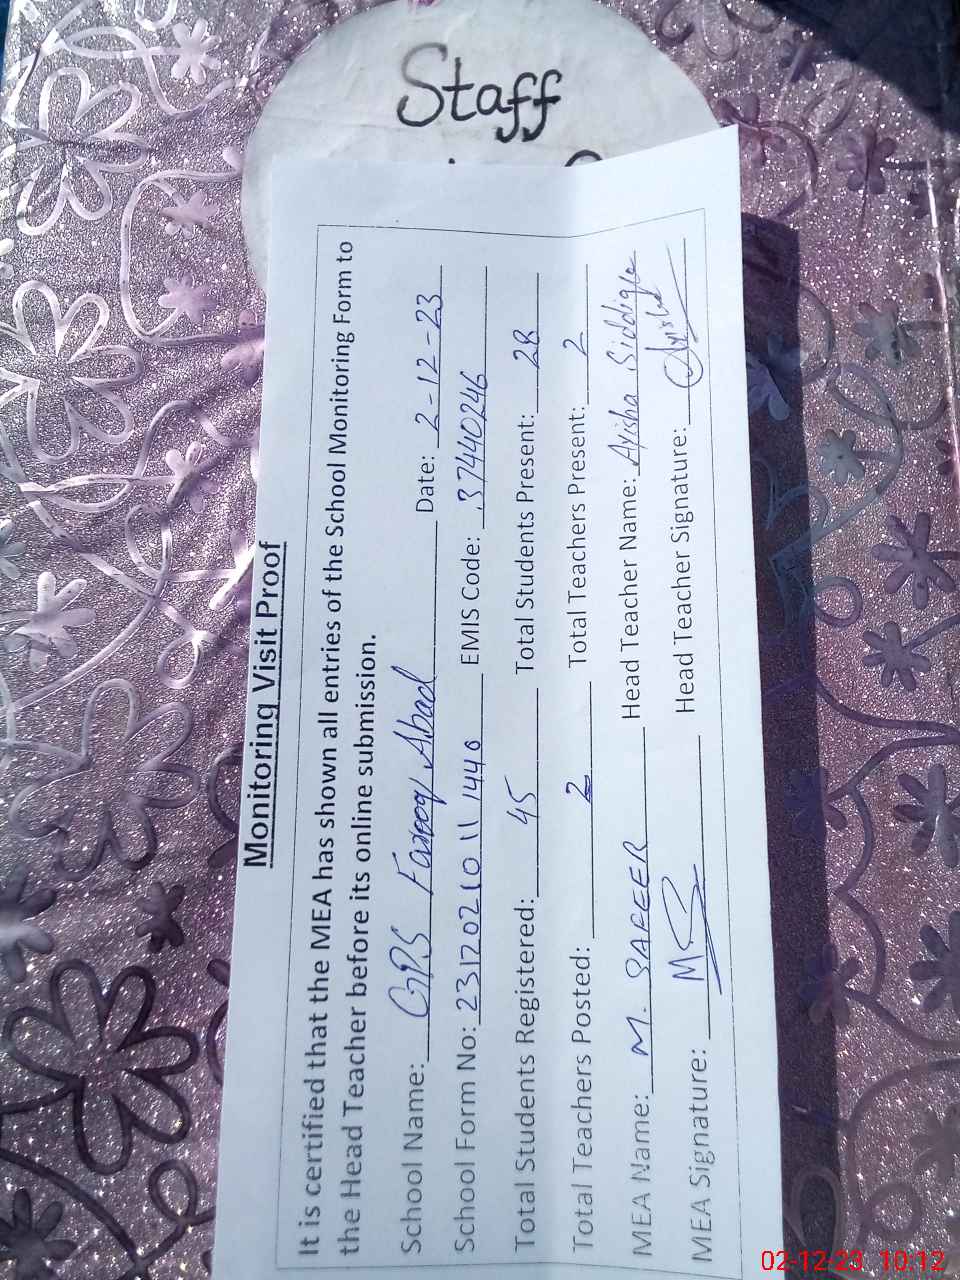 Staff
Monitoring Visit Proof
It is certified that the MEA has shown all entries of the School Monitoring Form to
the Head Teacher before its online submission.
School Name: GPS Farooq Abad Date: 2-12-23
School Form No: 23120210111440 EMIS Code: 37440246
Total Students Registered: 45 Total Students Present: 28
Total Teachers Posted: 2 Total Teachers Present: 2
MEA Name: M. SAFEER Head Teacher Name: Ayisha Siddiqa
MEA Signature: Head Teacher Signature:
02-12-23 10:12